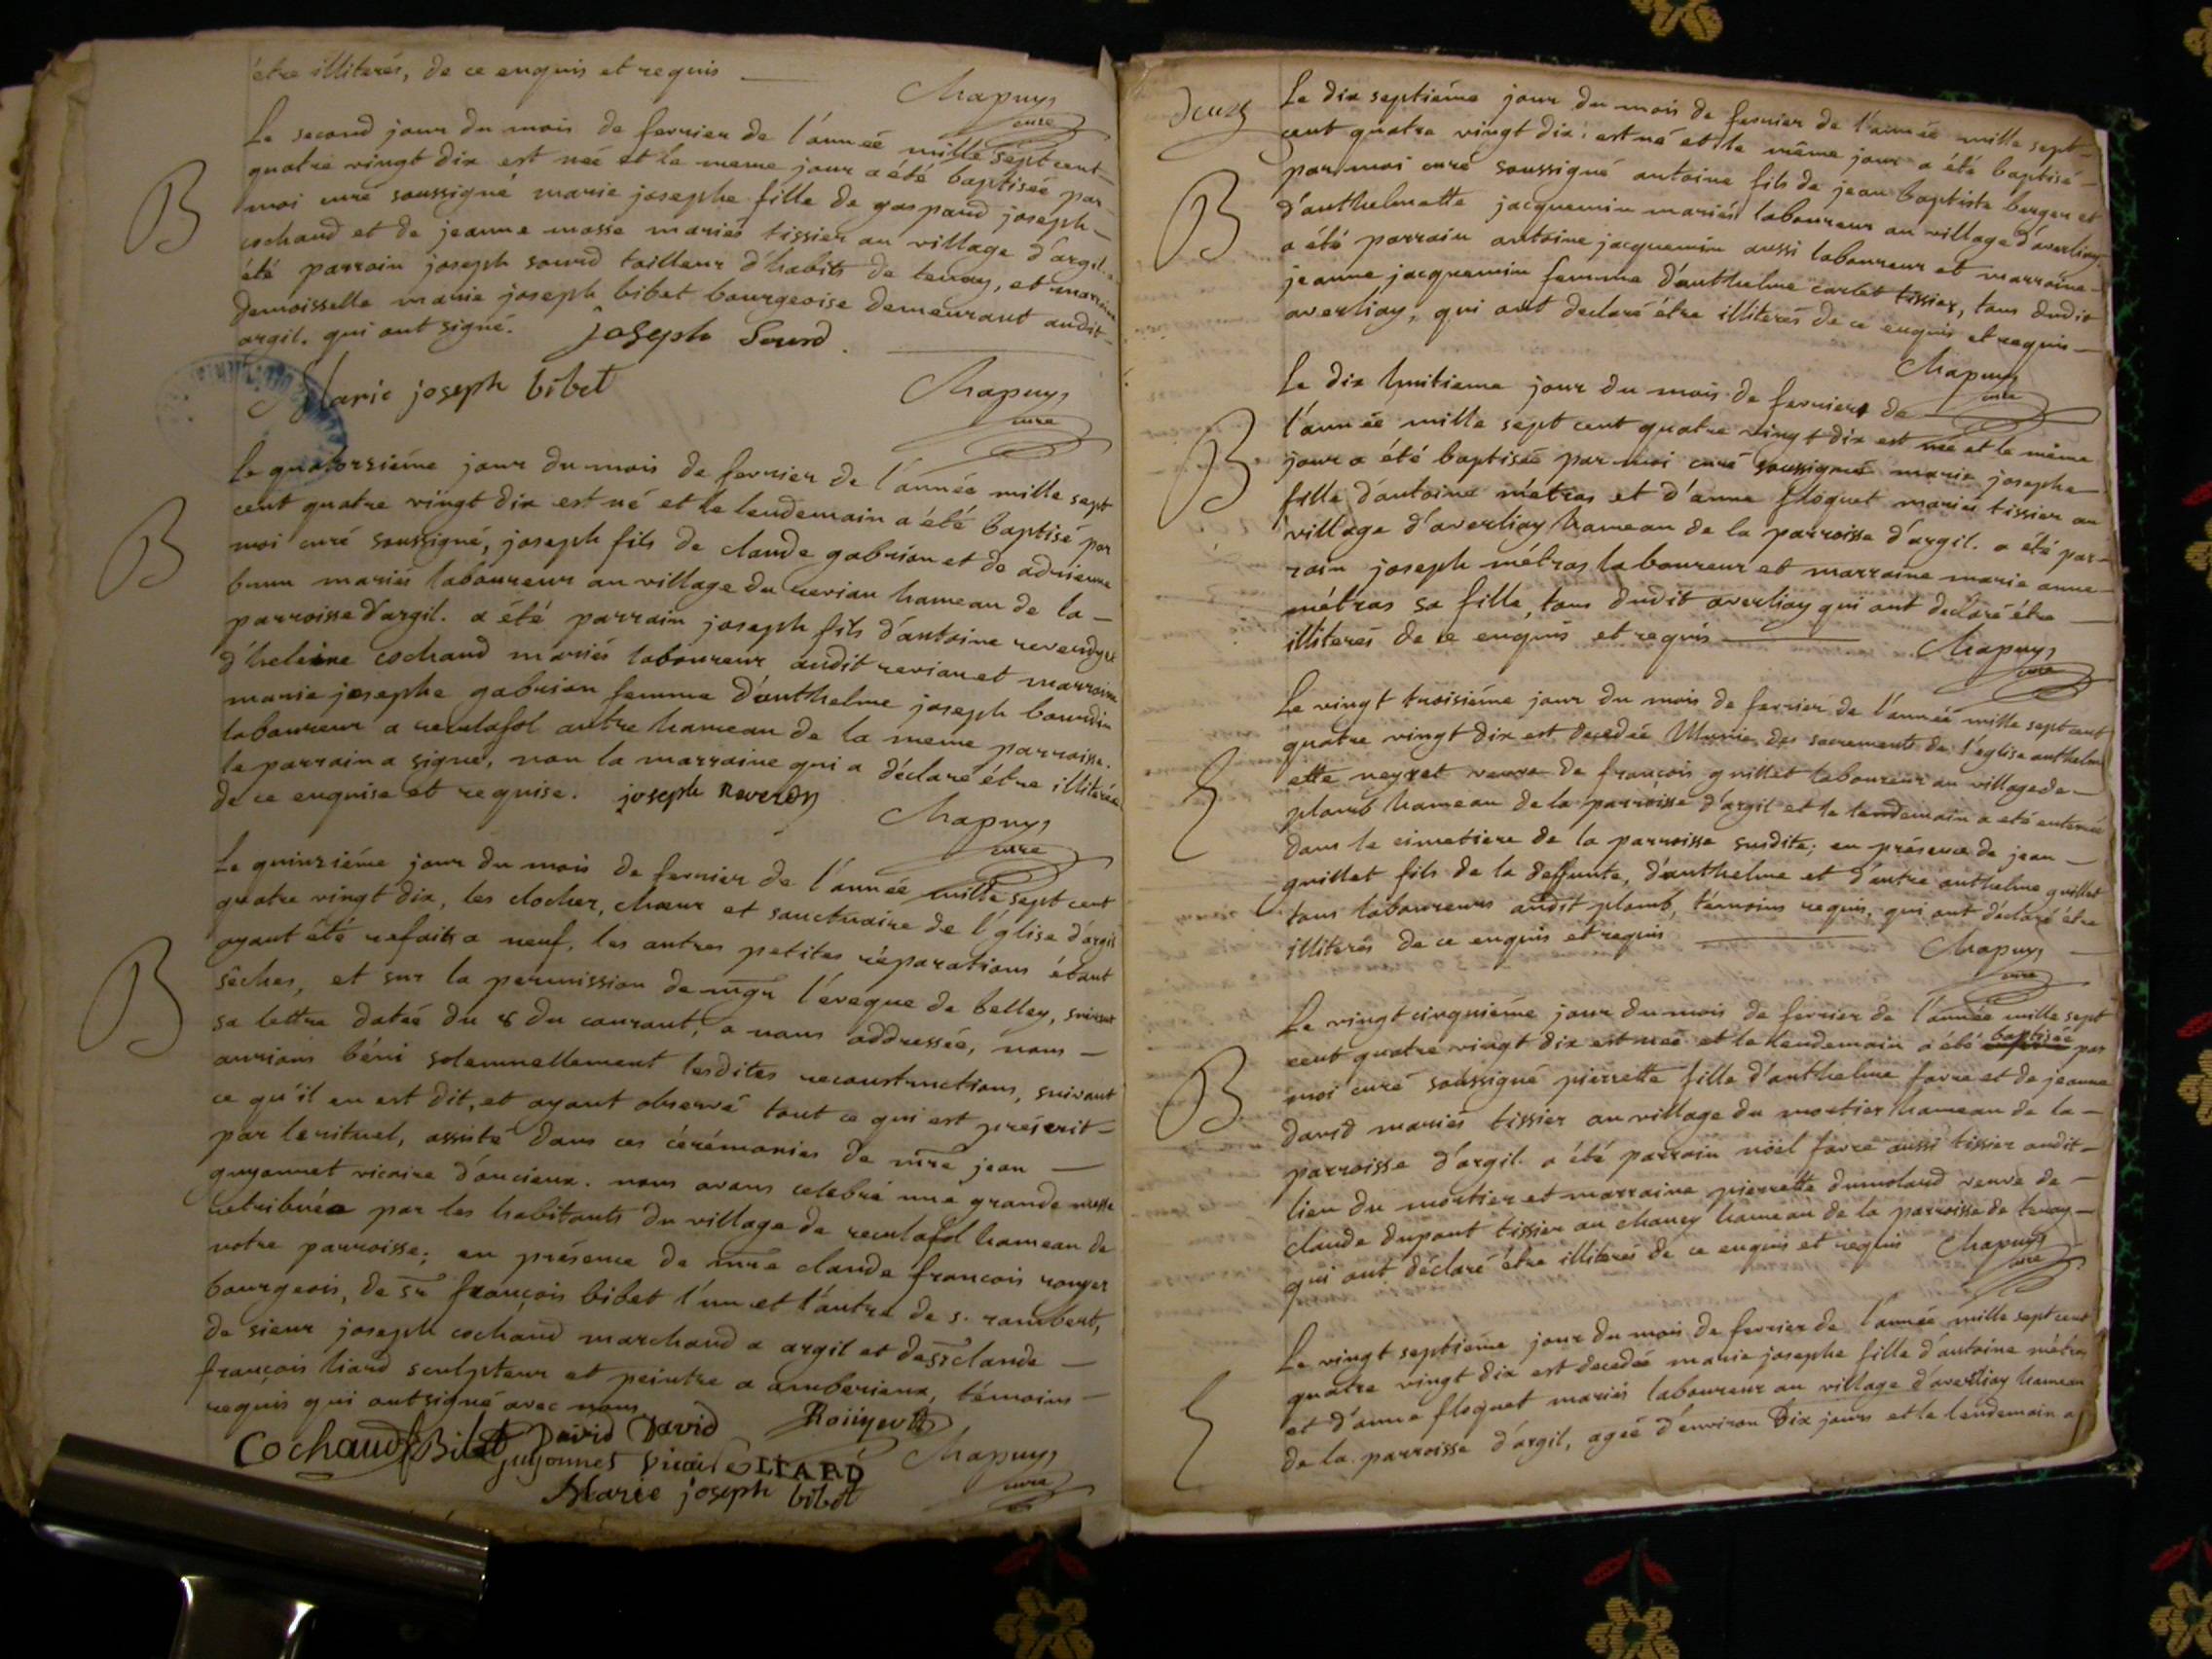 être illiterés, de ce enquis et requis
Chapuys
curé
Le second jour du mois de fevrier de l'année mille sept cent
quatre vingt dix est née et le meme jour a été baptisée par
moi curé soussigné marie josephe fille de gaspard joseph
cochand et de jeanne masse mariés tissier au village d'argil. a
été parrain joseph sourd tailleur d'habits de tenay, et marraine
demoiselle marie joseph bibet bourgeoise demeurant audit
argil. qui ont signé. joseph Sourd
Marie joseph bibet
Chapuys
curé
B
Le quatorzième jour du mois de fevrier de l'année mille sept
cent quatre vingt dix est né et le lendemain a été baptisé par
moi curé soussigné, joseph fils de claude gabrion et de adrienne
mariés laboureur au village du hameau de la
B
parroisse d'argil. a été parrain joseph fils d'antoine reverdy et
d'heleine cochand mariés laboureur audit et marraine
marie josephe gabrion femme d'anthelme joseph bourdin
laboureur a reculafol autre hameau de la meme parroisse.
le parrain a signé, non la marraine qui a déclaré être illiterée
de ce enquise et requise. joseph Reverdy
Chapuys
curé
Le quinzième jour du mois de fevrier de l'année mille sept cent
quatre vingt dix, les clocher, chœur et sanctuaire de l'église d'argil
ayant été refaits a neuf, les autres petites réparations étant
B
sêches, et sur la permission de mgr l'éveque de belley, suivant
sa lettre datée du 8 du courant, a nous addressée, nous
aurions béni solemnellement lesdites reconstructions, suivant
ce qu'il en est dit, et ayant observé tout ce qui est préscrit
par le rituel, assisté dans ces cérémonies de mre jean
guyonnet vicaire d'oncieux. nous avons celebré une grande messe
retribuée par les habitants du village de reculafol hameau de
notre parroisse; en présence de mre claude françois rouyer
bourgeois, de sr françois bibet l'un et l'autre de s. rambert,
de sieur joseph cochand marchand a argil et de sr claude
françois liard sculpteur et peintre a amberieux, témoins
requis qui ont signé avec nous
Cochaud Bibet David David Rouyer
guyonnet vicaire LIARD Chapuys
Marie joseph bibet curé
Le dix septième jour du mois de fevrier de l'année mille sept
cent quatre vingt dix est né et le même jour a été baptisé
par moi curé soussigné antoine fils de jean baptiste berger et
B
d'anthelmette jacquemin mariés laboureur au village d'averliay.
a été parrain antoine jacquemin aussi laboureur et marraine
jeanne jacquemin femme d'anthelme carlet tissier, tous dudit
averliay, qui ont declaré être illiterés de ce enquis et requis
Chapuys
curé
Le dix huitieme jour du mois de fevrier de
l'année mille sept cent quatre vingt dix est née et le même
B
jour a été baptisée par moi curé soussigné marie josephe
fille d'antoine métras et d'anne floquet mariés tissier au
village d'averliay hameau de la parroisse d'argil. a été par-
rain joseph métras laboureur et marraine marie anne
métras sa fille, tous dudit averliay qui ont declaré être
illiterés de ce enquis et requis
Chapuys
curé
Le vingt troisième jour du mois de fevrier de l'année mille sept cent
quatre vingt dix est decedée Munie des sacrements de l'église anthelm
ette neyret veuve de françois guillet laboureur au village de
plomb hameau de la parroisse d'argil et le lendemain a été enterrée
dans le cimetiere de la parroisse susdite; en présence de jean
guillet fils de la deffunte, d'anthelme et d'autre anthelme guillet
tous laboureurs audit plomb, témoins requis, qui ont déclaré être
illiterés de ce enquis et requis
Chapuys
curé
Le vingt cinquième jour du mois de fevrier de l'année mille sept
cent quatre vingt dix est née et le lendemain a été baptisée par
B
moi curé soussigné pierrette fille d'anthelme favre et de jeanne
david mariés tissier au village du mortier hameau de la
parroisse d'argil. a été parrain noël favre aussi tissier audit
lieu du mortier et marraine pierrette dumolard veuve de
claude dupont tissier au chaney hameau de la parroisse de tenay
qui ont déclaré être illiterés de ce enquis et requis Chapuys
curé
Le vingt septième jour du mois de fevrier de l'année mille sept cent
quatre vingt dix est decedée marie josephe fille d'antoine métras
et d'anne floquet mariés laboureur au village d'averliay hameau
de la parroisse d'argil, agée d'environ dix jours et le lendemain a